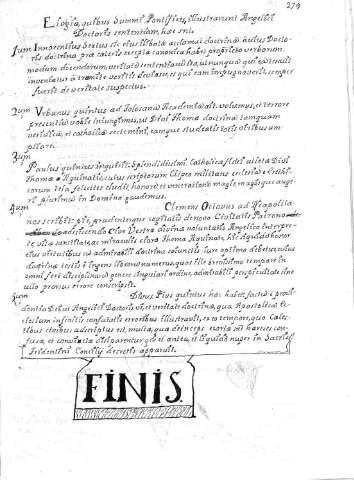 279
Elogia, quibus Summi Pontifices, illustrarunt Angelici
Doctoris sententiam, hæc sunt.
1um Innocentius Sextus sic eius illibata axiomata doctrinæ: huius Docto-
ris doctrina præ cæteris excepta canonica habet proprietatem verborum,
modum dicendorum, veritatem sententiarum ita, ut nunquam qui eam tenuit
inveniatur a tramite veritatis deviasse, et qui eam impugnaverit, semper
fuerit de veritate suspectus.
2um Urbanus quintus ad Tolosanam Academiam ait: volumus, et tenore
præsentium vobis iniungimus, ut Divi Thomæ doctrinam tamquam
veridicam, et catholicam sectemini, eamque studeatis totis viribus am-
pliari.
3um
Paulus quintus inquit: Splendidissimi Catholicæ fidei athletæ Divi
Thomæ Aquinatis, cuius scriptorum clypeo militans ecclesia
tela feliciter elidit, honorem et venerationem magis magisque auge-
ri plurimum in Domino gaudemus.
4um Clemens Octavus ad Neapolita-
nos scribit: pie, prudenterque cogitatis de novo Civitatis Patrono
adsciscendo Cive Vestro divinæ voluntatis Angelico Interpre-
te vitæ sanctitate, ac miraculis claro Thoma Aquinate, hic siquidem honor
eius virtutibus admirabili doctrinæ coniunctis iure optimo debetur, cuius
doctrinæ testis est ingens librorum numerus, quos ille brevissimo tempore in
omni fere disciplinarum genere singulari ordine, admirabili perspicuitate sine
ullo prorsus errore conscripsit.
5um Divus Pius quintus hæc habet: factum est provi-
dentia Dei ut Angelici Doctoris vi, et veritate doctrinæ, qua Apostolicam Ec-
clesiam infinitis confutatis erroribus illustravit, ex eo tempore, quo Cæles-
tibus civibus adscriptus est, multæ, quæ deinceps exortæ sunt hæreses con-
fusæ, et convictæ dissiparentur, quod et antea, et liquido nuper in Sacris
Tridentini Concilii decretis apparuit.
FINIS.